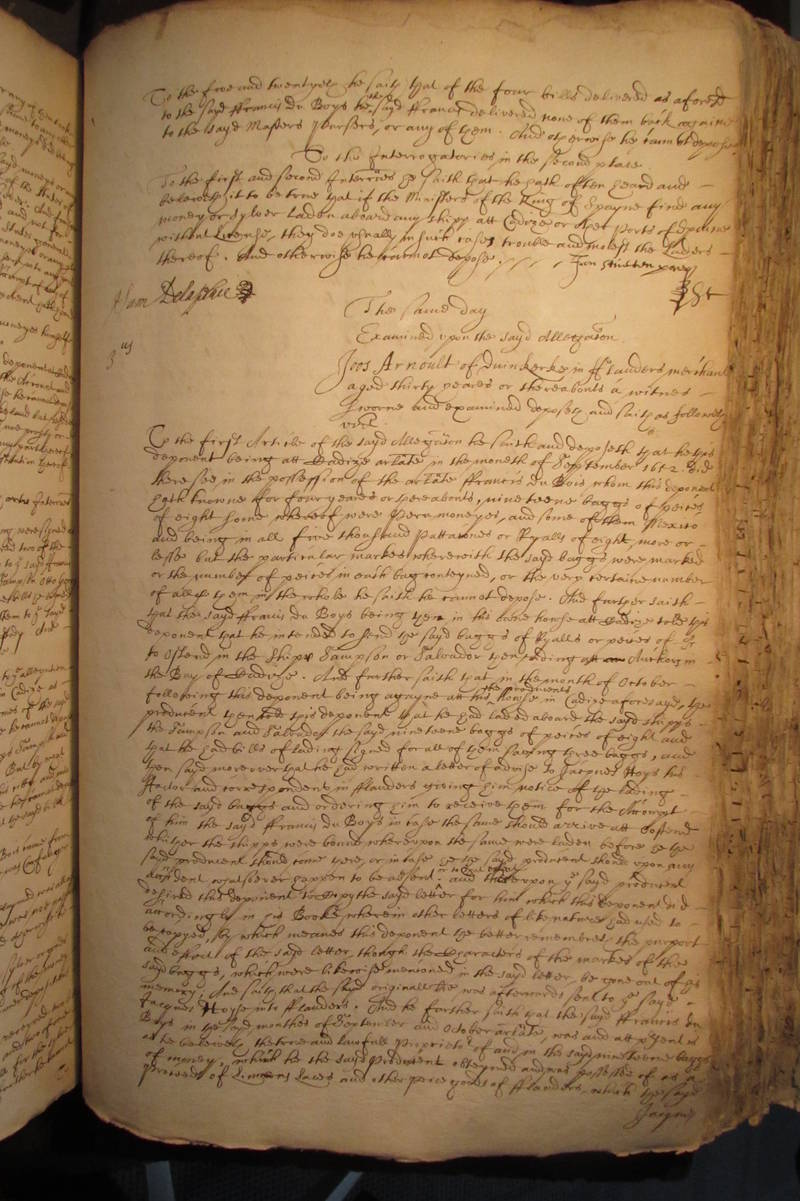 To the five and twentyeth he saith that of the four bills delivered as aforesd
to the sayd ffrancis du Boys he the sayd ffrancis delivered none of them back againe
to the sayd Masters pursers, or any of them. And otherwise he cannot depose
To the Interrogatories in the second place
To the first and second Interries he saith that he hath often heard and
beleeveth it to be true that if the Ministers of the King of Spayne find any
money or sylver laden aboard any shipp att Cadize or other ports of Spaine
without license, they doe usually in such cases trouble and molest the Laders
thereof. And otherwise he cannot depose.
The same day
Examined upon the sayd Allegation.
3us
Joos Arnoult of Duinkerke in fflanders merchant
aged thirty yeares or thereabouts a witnes
sworne and examined deposeth and saith as followeth
vizt.
To the first Article of the sayd Allegation he saith and deposeth that he this
deponent being att Cadize arlate in the moneth of September 1652 did
there see in the possession of the arlate ffrancis du Bois whom this deponent
hath knowne for four yeares or thereabouts, nineteene baggs of peices
of eight some whereof were Peru moneyes, and some of them Mexico
and being in all five thousand Pattacones or Ryalls of eight, more or
lesse but the particular markes wherewith the sayd baggs were marked
or the number of peices in each bag conteyned, or the very certaine number
of all of them in the whole he saith he cannot depose. And further saith
that the sayd ffrancis du Boys being then in his owne house att Cadize told this
deponent that he intended to send the sayd baggs of Ryalls or peices of
to Ostend in the Shipps Sampson or Salvador then riding att
the Bay of Cadize. And further saith that in the month of October
following this deponent being agayne at the producents house in Cadize aforesayd, the
producent then told this deponent that he had laded aboard the sayd shipps
the Sampson and Salvador the sayd nineteene baggs of peices of eight and
that he had bills of lading signed for all of them saving three baggs, and
then sayd moreover that he had written a letter of advise to Jacques Hoys his
ffactor and correspondent in fflanders giving him notice of the lading
of the sayd baggs and ordering him to receive them for the Accompt
of him the sayd ffrancis du Boys in case the same should arrive att Oostend
whither the shipps were bound whereupon the same were laden before he the
sayd producent should come there, or in case he the sayd producent should upon any
Accident whatsoever happen to be absent and thereupon ye sayd producent
desired this deponent to coppy the sayd letter for him which this deponent did
accordingly in his Booke wherein other letters of like nature had used to
be coppyed, by which meanes this deponent the better remembres the purport
and effect of the sayd letter, though the characters of the markes of the
sayd baggs, which were likewise mentioned in the sayd letter, be gone out of his
memory. And saith that the sayd originall was afterwards sent to ye sayd
Jacques Hoyse into fflanders. And he further saith that the sayd ffrancis du
Boys in the sayd months of September and October arlate, was and att present is
as he beleeveth the true and lawfull Proprietor of and in the sayd nineteene baggs
of money, which he the sayd producent obteyned and was possessed of as
proceeds of Linnens Laces and other peice goods of fflanders, which the sayd
Jacques